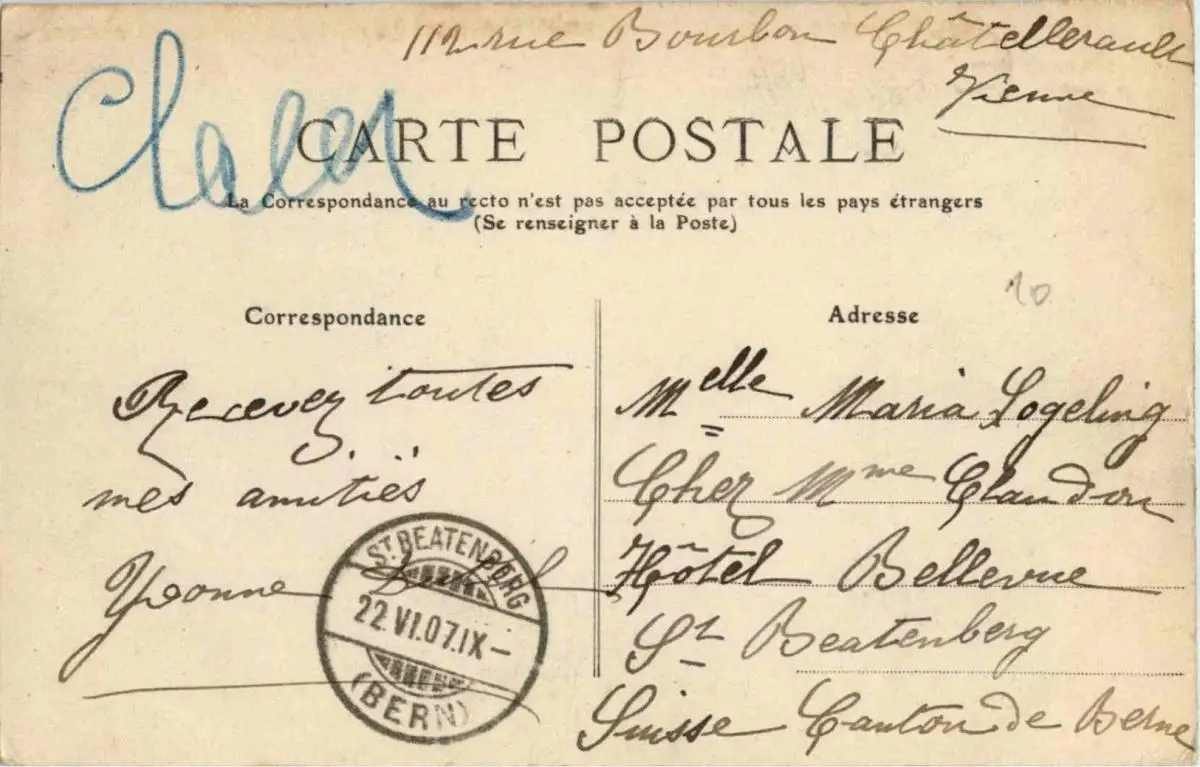 112 rue Bourbon Châtellerault
Vienne
CARTE POSTALE
La Correspondance au recto n'est pas acceptée par tous les pays étrangers
(Se renseigner à la Poste)
10
Correspondance
Adresse
Recevez toutes
mes amitiés
Yvonne
ST. BEATENBERG
22.VI.07.IX–
(BERN)
Melle Maria Logeling
Chez Mme Claudon
Hôtel Bellevue
St Beatenberg
Suisse Canton de Berne